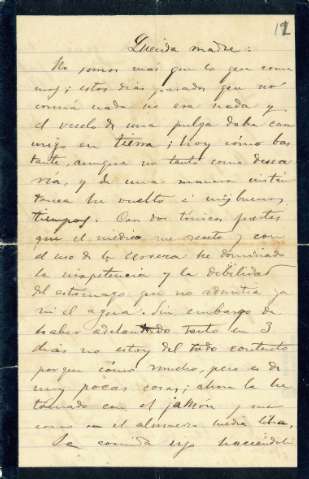 12
Querida madre:
No somos mas que lo que come
mos; estos días pasados que no
comía nada no era nada y
el vuelo de una pulga daba con
migo en tierra; hoy cómo bas
tante, aunque no tanto como desea
ría, y de una manera instán
tanea he vuelto á mis buenos
tiempos. Con dos tónicos fuertes
que el médico me recetó y con
el uso de la he dominado
la inapetencia y la debilidad
del estomago que no admitia ya
ni el agua. Sin embargo de
haber adelantado tanto en 3
dias no estoy del todo contento
porque cómo mucho, pero es de
muy pocas cosas; ahora la he
tomado con el jamón y me
como en el almuerzo media libra.
La comida sigo haciéndola